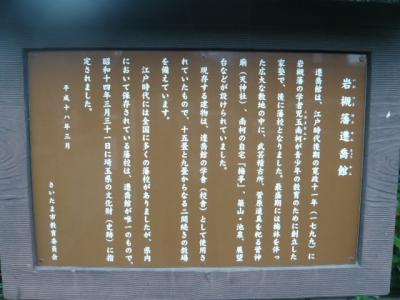 岩槻藩遷喬館
遷喬館は、江戸時代後期寛政十一年(一七九九)に
岩槻藩の学者児玉南柯が青少年の教育のために創立した
家塾で、後に藩校となりました。最盛期には梅林を伴っ
た広大な敷地の中に、武芸稽古所、菅原道真を祀る菅神
廟(天神社)、南柯の自宅「梅亭」、築山・池泉、展望
台などが設けられていました。
現存する建物は、遷喬館の学舎(校舎)として使用さ
れていたもので、十五畳と九畳からなる二間続きの教場
を備えています。
江戸時代には全国に多くの藩校がありましたが、県内
において保存されている藩校は、遷喬館が唯一のもので、
昭和十四年三月三十一日に埼玉県の文化財(史跡)に指
定されました。
平成十八年三月
さいたま市教育委員会